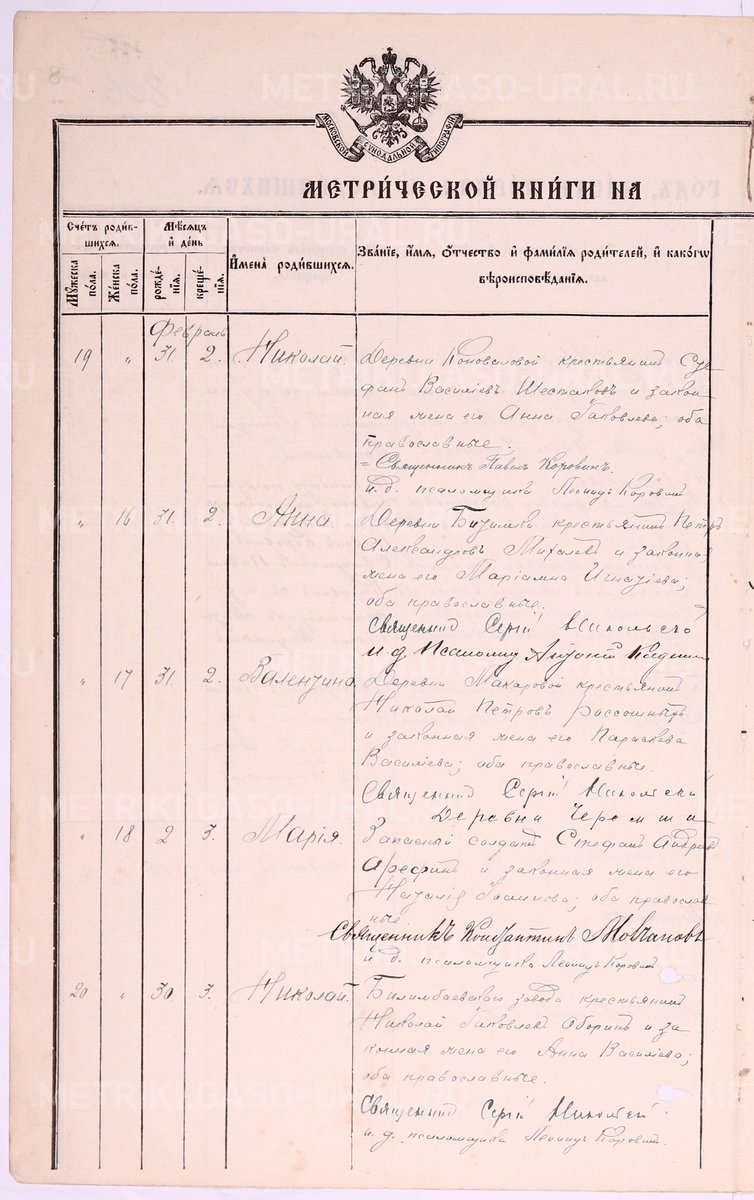 МОСКОВСКОЙ СѴНОДАЛЬНОЙ ТИПОГРАФІИ
МЕТРИ́ЧЕСКОЙ КНИ́ГИ НА
Сче́тъ роди́в-
шихся.
Мѣсяцъ
и҆ де́нь
И҆мена̀ роди́вшихся.
Зва́нїе, и҆́мѧ, ѻ҆́тчество и҆ фами́лїѧ роди́телей, и҆ како́гѡ
вѣроисповѣ́данїѧ.
Му́жеска по́ла.
Же́нска по́ла.
рожде́-нїѧ.
креще́-нїѧ.
Февраль
19 " 31 2. Николай. Деревни Коноваловой крестьянинъ Сте
фанъ Василіевъ Шестаковъ и закон
ная жена его Анна Іаковлева; оба
православные.
= Священникъ Павелъ Коровинъ.
и. д. псаломщика Леонидъ Коровин
" 16 31. 2. Анна. Деревни Бизимки крестьянинъ Петръ
Александровъ Михалевъ и законная
жена его Маріамна Игнатіева;
оба православные.
Священник Сергій Никольскій
и д Псаломщ Антоній
" 17 31. 2. Валентина. Деревни Макаровой крестьянинъ
Николай Петровъ Рассошныхъ
и законная жена его Параскева
Василіева; оба православные.
Священник Сергій Никольскій
Деревни Черемши
" 18 2 3. Марія. Запасный солдатъ Стефанъ Андреевъ
Арефинъ и законная жена его
Наталія Іоаннова; оба православ
ные.
Священникъ Константинъ Мовчановъ
и д. псаломщика Леонидъ Коровин
20 " 30 3. Николай. Билимбаевскаго завода крестьянинъ
Николай Іаковлевъ Оборинъ и за
конная жена его Анна Василіева;
оба православные.
Священник Сергій Никольскій
и. д. псаломщика Леонидъ Коровин.
METRIKI.GASO-URAL.RU